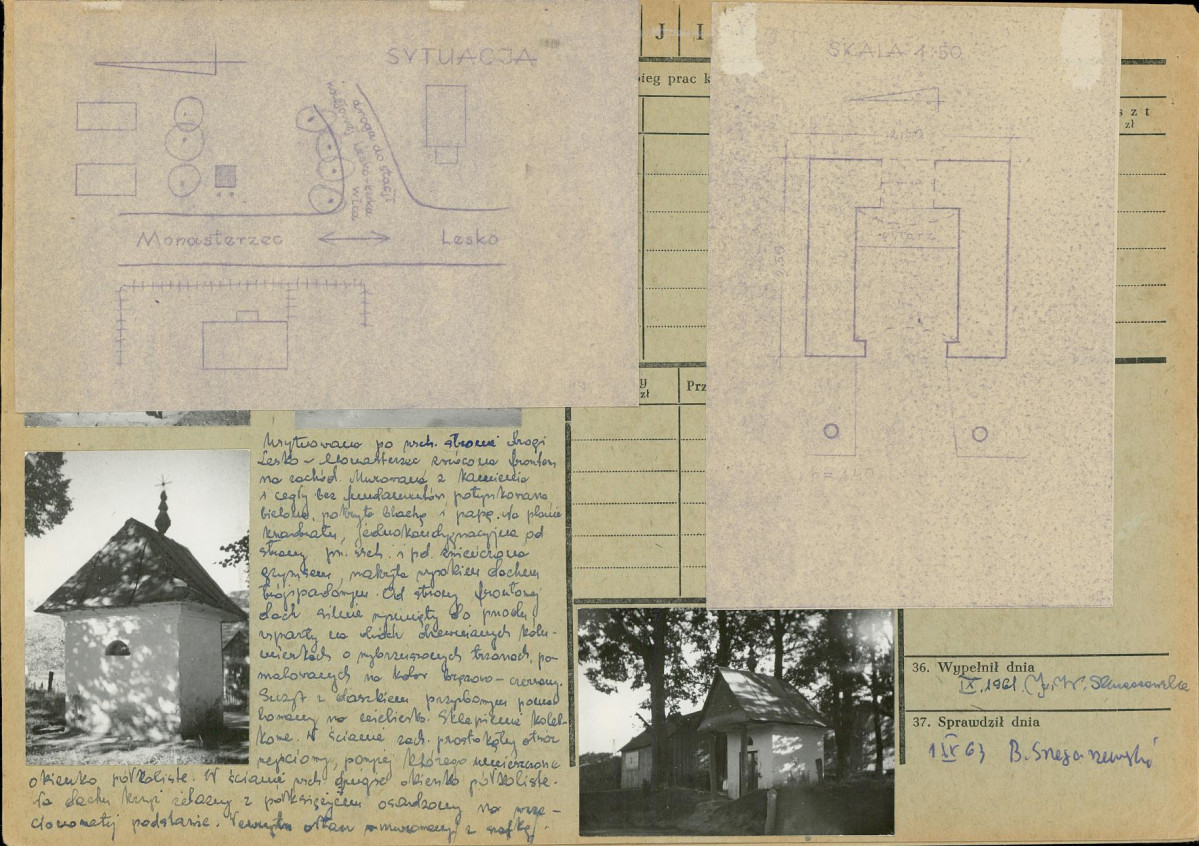 SYTUACJA
droga do stacji
Monasterzec
Lesko
J I
ieg prac k
SKALA 1:50
s z t
zł
y
zł
Prz
Usytuowana po wsch. stronie drogi
Lesko – Monasterzec zwrócona frontem
na zachód. Murowana z kamienia
i cegły bez fundamentów potynkowana
bielona, pokryta blachą i papą. Na planie
kwadratu, jednokondygnacyjna, od
strony pn. wsch. i pd. zwieńczona
gzymsem, nakryta wysokim dachem
trójspadowym. Od strony frontowej
dach silnie wysunięty do przodu,
wsparty na dwóch drewnianych kolu-
mienkach o wybrzuszonych trzonach, po-
malowanych na kolor brązowo-czerwony.
Szczyt z daszkiem przyzbowym poma
lowany na niebiesko. Sklepienie koleb-
kowe. W ścianie zach. prostokątny otwór
wejściowy, powyżej którego umieszczono
okienko półkoliste. W ścianie wsch. drugie okienko półkoliste.
Na dachu krzyż żelazny z półksiężycem osadzony na wrze-
cionowatej podstawie. Wewnątrz ołtarz murowany z wnęką.
ołtarz
36. Wypełnił dnia
IX. 1961
37. Sprawdził dnia
1 IX 63